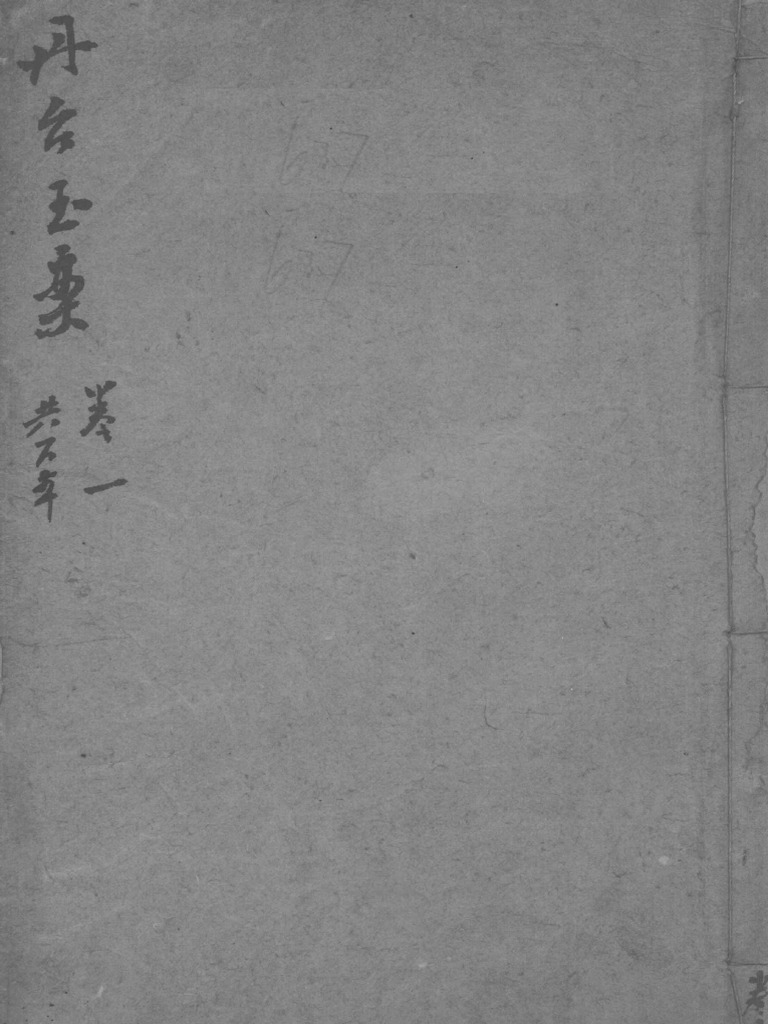 丹台玉案
卷一
共六本
637
637
卷